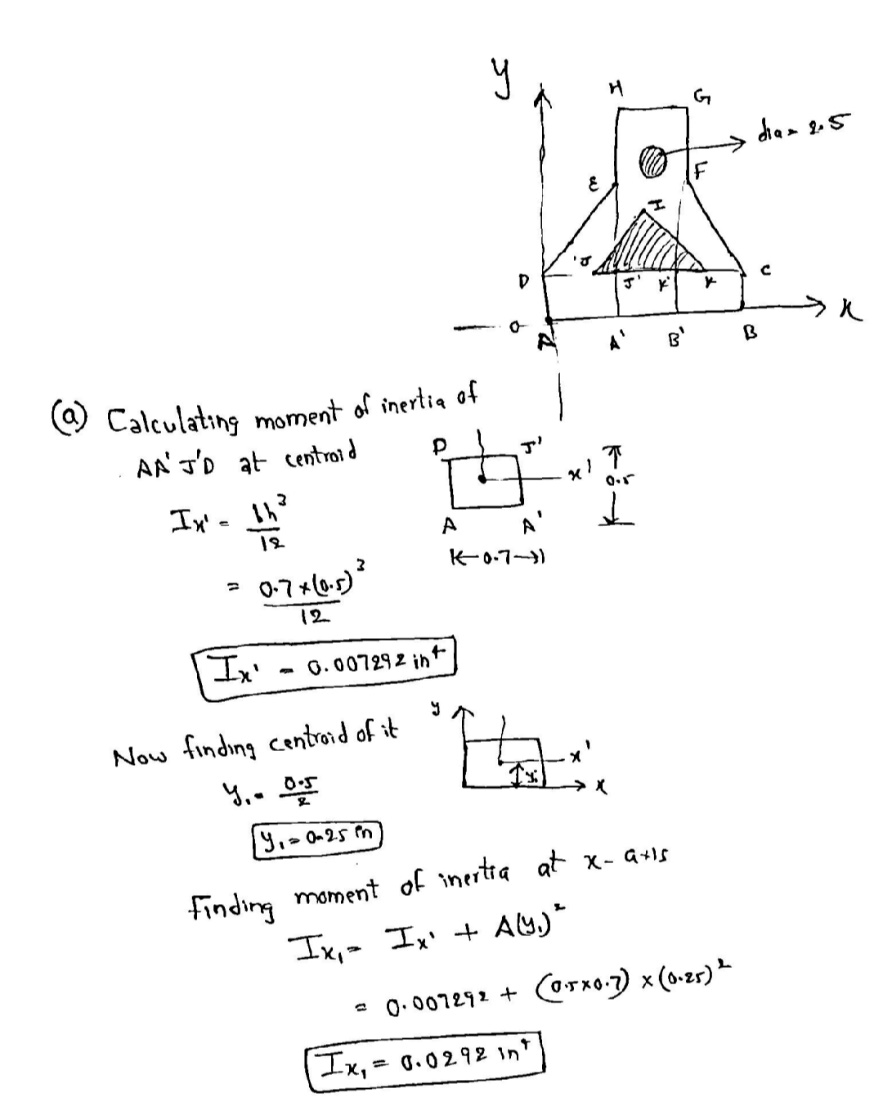 y
H
G
dia = 2.5
E
F
I
D
J
J'
K'
K
C
O
A
A'
B'
B
x
(a) Calculating moment of inertia of
AA'J'D at centroid
Ix' = bh³/12
= 0.7×(0.5)³/12
Ix' = 0.007292 in⁴
D
J'
x'
0.5
A
A'
0.7
Now finding centroid of it
y₁ = 0.5/2
y₁ = 0.25 in
y
x'
y₁
x
Finding moment of inertia at x-axis
Ix₁ = Ix' + A(y₁)²
= 0.007292 + (0.5×0.7) × (0.25)²
Ix₁ = 0.0292 in⁴